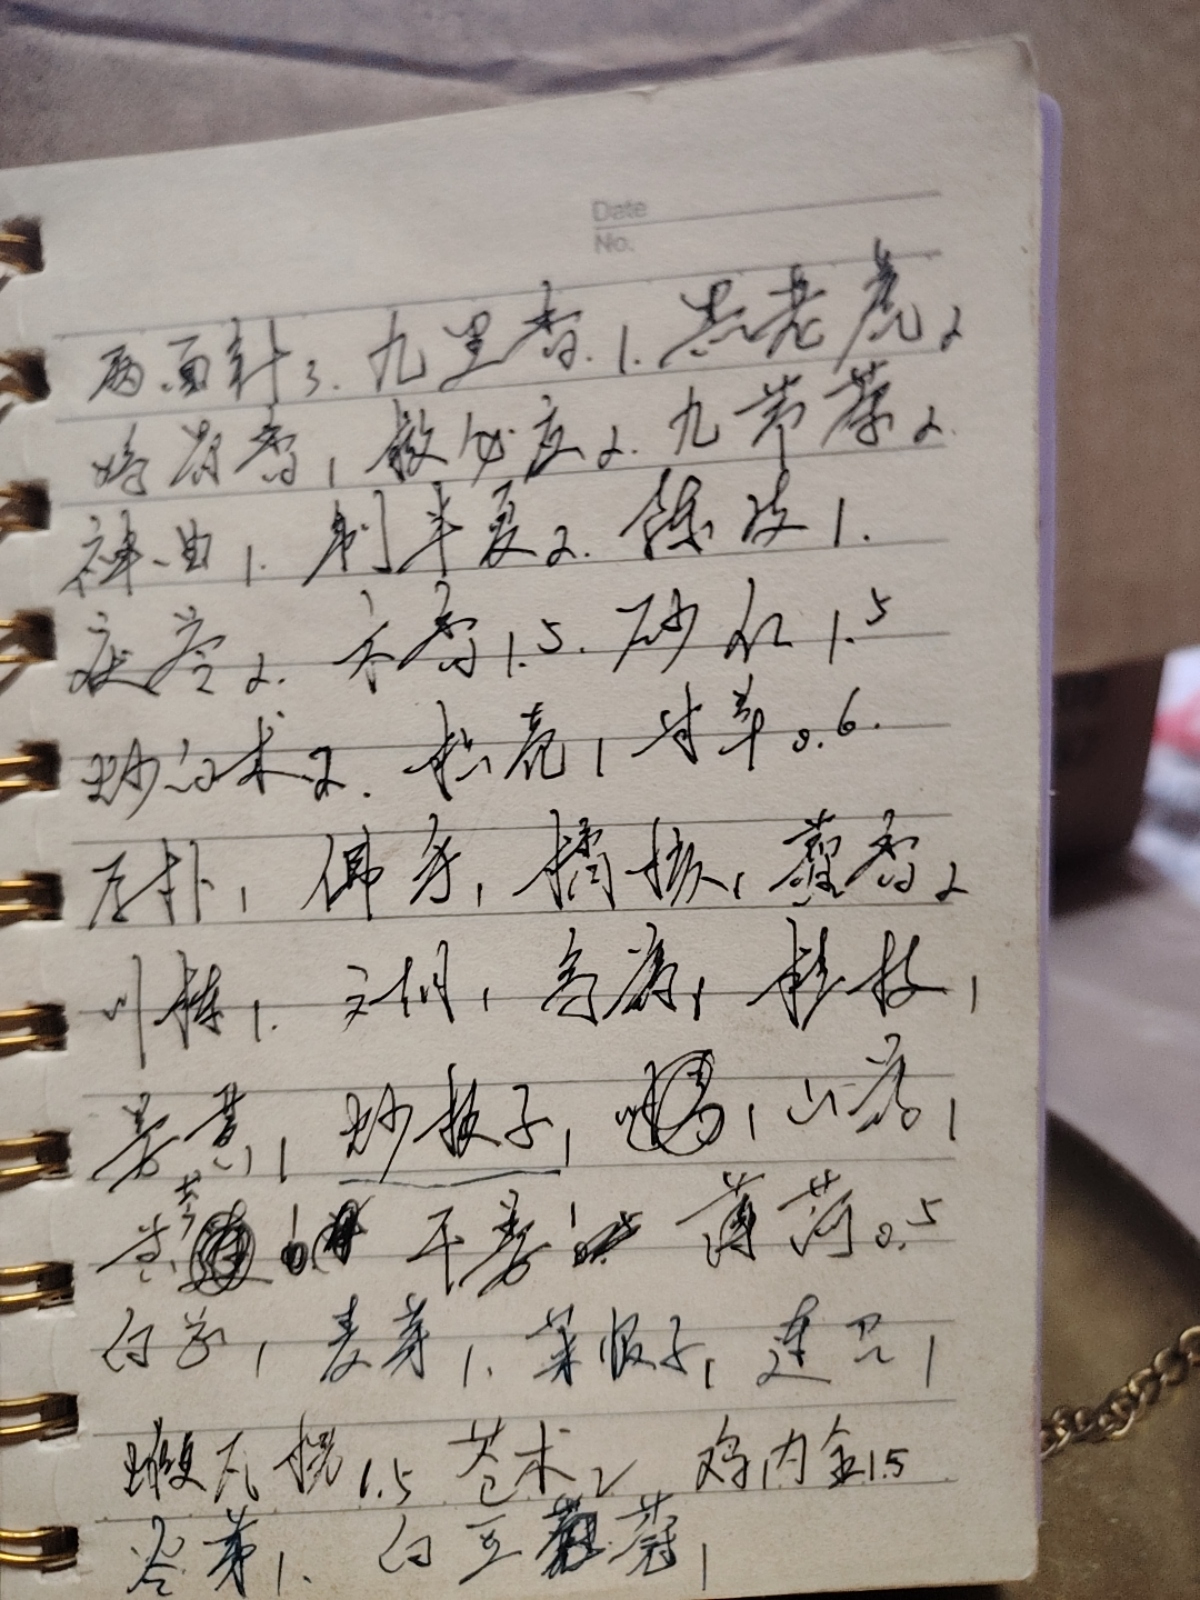 Date
No.
两面针3. 九里香.1. 黑老虎2
鸡骨香1 救必应2. 九节茶2.
神曲1. 制半夏2. 陈皮1.
茯苓2. 木香1.5. 砂仁1.5
炒白术2. 枳壳1 甘草0.6.
厚朴1 佛手1 橘核1 藿香2
川楝1. 元胡1 乌药1 桂枝1
姜黄1 炒枝子1 山药1
黄芩 干姜1 薄荷0.5
白芍1 麦芽1. 莱菔子1 连召1
瓦楞1.5 苍术2 鸡内金1.5
谷芽1. 白豆蔻1